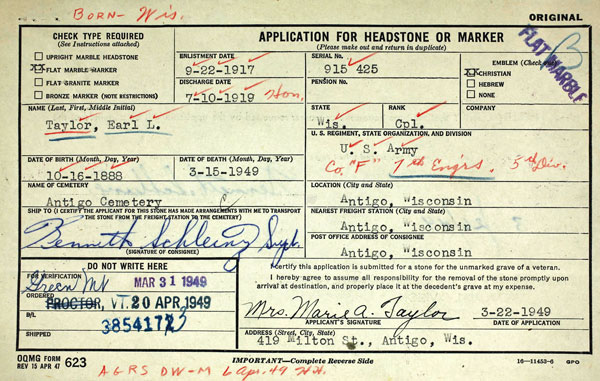 BORN- Wis.
ORIGINAL
CHECK TYPE REQUIRED
(See Instructions attached)
UPRIGHT MARBLE HEADSTONE
XX FLAT MARBLE MARKER
FLAT GRANITE MARKER
BRONZE MARKER (NOTE RESTRICTIONS)
APPLICATION FOR HEADSTONE OR MARKER
(Please make out and return in duplicate)
ENLISTMENT DATE
9-22-1917
DISCHARGE DATE
7-10-1919 Hon.
SERIAL No.
915 425
PENSION No.
EMBLEM (Check one)
XX CHRISTIAN
HEBREW
NONE
FLAT MARBLE
B
NAME (Last, First, Middle Initial)
Taylor, Earl L.
STATE
Wis.
RANK
Cpl.
COMPANY
U. S. REGIMENT, STATE ORGANIZATION, AND DIVISION
U. S. Army
Co. "F" 7th Engrs. 5th Div.
DATE OF BIRTH (Month, Day, Year)
10-16-1888
DATE OF DEATH (Month, Day, Year)
3-15-1949
NAME OF CEMETERY
Antigo Cemetery
LOCATION (City and State)
Antigo, Wisconsin
SHIP TO (I CERTIFY THE APPLICANT FOR THIS STONE HAS MADE ARRANGEMENTS WITH ME TO TRANSPORT
THE STONE FROM THE FREIGHT STATION TO THE CEMETERY)
NEAREST FREIGHT STATION (City and State)
Antigo, Wisconsin
Supt.
(SIGNATURE OF CONSIGNEE)
POST OFFICE ADDRESS OF CONSIGNEE
Antigo, Wisconsin
DO NOT WRITE HERE
FOR VERIFICATION
MAR 31 1949
Green Mt
ORDERED
PROCTOR, VT. 20 APR 1949
B/L
3854172
SHIPPED
I certify this application is submitted for a stone for the unmarked grave of a veteran.
I hereby agree to assume all responsibility for the removal of the stone promptly upon
arrival at destination, and properly place it at the decedent's grave at my expense.
Mrs. Marie A. Taylor 3-22-1949
APPLICANT'S SIGNATURE DATE OF APPLICATION
ADDRESS (Street, City, State)
419 Milton St., Antigo, Wis.
OQMG FORM
REV 15 APR 47 623
IMPORTANT—Complete Reverse Side
16—11453-6 GPO
AGRS DW-M 6 Apr. 49